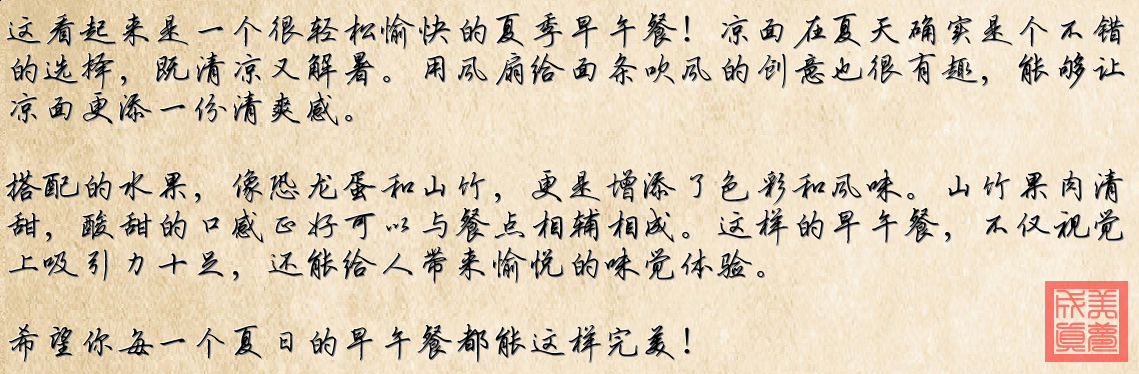 这看起来是一个很轻松愉快的夏季早午餐！凉面在夏天确实是个不错
的选择，既清凉又解暑。用风扇给面条吹风的创意也很有趣，能够让
凉面更添一份清爽感。
搭配的水果，像恐龙蛋和山竹，更是增添了色彩和风味。山竹果肉清
甜，酸甜的口感正好可以与餐点相辅相成。这样的早午餐，不仅视觉
上吸引力十足，还能给人带来愉悦的味觉体验。
希望你每一个夏日的早午餐都能这样完美！
美梦成真